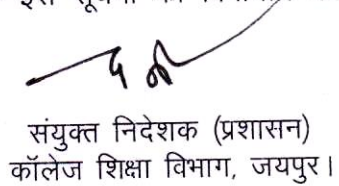 संयुक्त निदेशक (प्रशासन)
कॉलेज शिक्षा विभाग, जयपुर।